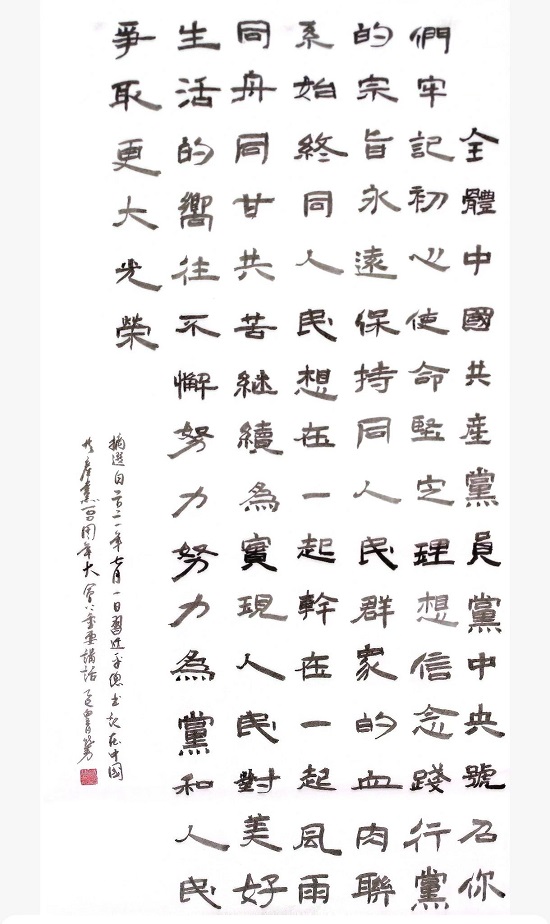 全體中國共産黨員黨中央號召你
們牢記初心使命堅定理想信念踐行黨
的宗旨永遠保持同人民群眾的血肉聯
系始終同人民想在一起幹在一起風雨
同舟同甘共苦継續為實現人民對美好
生活的嚮往不懈努力努力為黨和人民
爭取更大光榮
摘选自二〇二一年七月一日習近平总书记在中國
共産黨百周年大會上重要講話